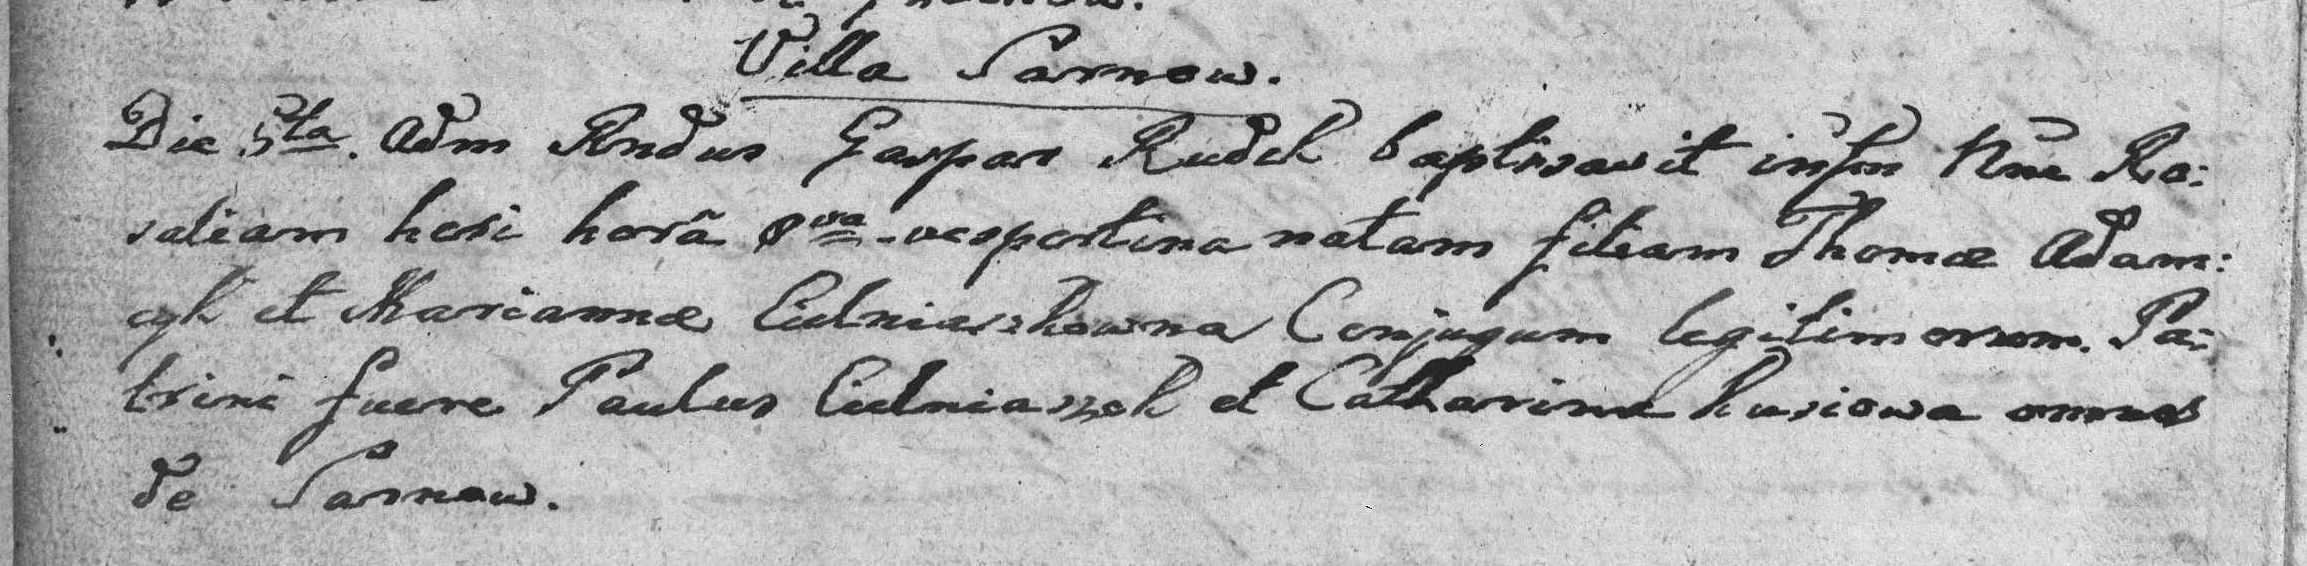 Villa Sarnow.
Die 5ta. Adm Rndus Gaspar Rudek baptisavit infm Nne Ro:
saliam heri horâ 8va vespertina natam filiam Thomæ Adam:
czk et Mariannæ Culniaszkowna Conjugum legitimorum. Pa:
trini fuere Paulus Culniaszek et Catharina Kusiowa omnes
de Sarnow.